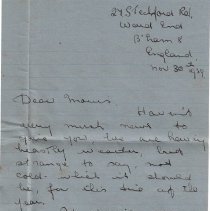 27 Stechford Rd,
Ward End
B'ham 8
England.
Nov 30th
Dear Mavis
Haven't
very much news to
give you. We are having
nasty weather, but
strange to say, not
cold which it should
be, for this time of the
year.